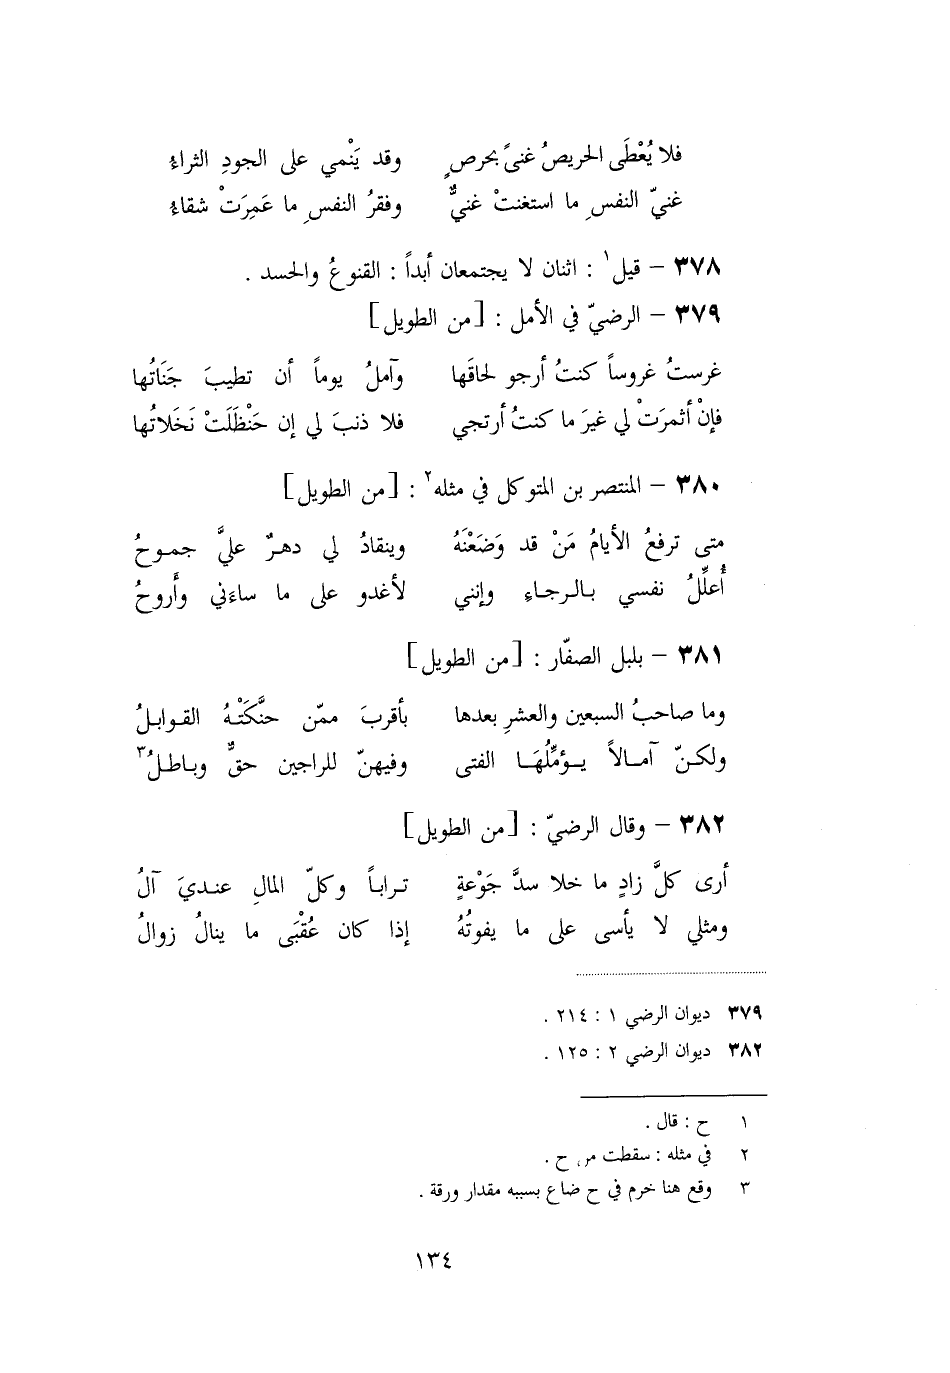 فلا يُعْطَى الحريصُ غنىً بحرصٍ وقد يَنْمي على الجودِ الثراءُ
غنيّ النفسِ ما استغنتْ غنيٌّ وفقرُ النفسِ ما عَمِرَتْ شقاءُ
٣٧٨ – قيل١ : اثنان لا يجتمعان أبداً : القنوعُ والحسد .
٣٧٩ – الرضيّ في الأمل : [من الطويل]
غرستُ غروساً كنتُ أرجو لحاقَها وآملُ يوماً أن تطيبَ جَنَاتُها
فإنْ أثمرَتْ لي غيرَ ما كنتُ أرتجي فلا ذنبَ لي إن حَنْظَلَتْ نَخَلاتُها
٣٨٠ – المنتصر بن المتوكل في مثله٢ : [من الطويل]
متى ترفعُ الأيامُ مَنْ قد وَضَعْنَهُ وينقادُ لي دهرٌ عليَّ جموحُ
أُعلِّلُ نفسي بالرجاءِ وإنني لأغدو على ما ساءني وأَروحُ
٣٨١ – بلبل الصفّار : [من الطويل]
وما صاحبُ السبعين والعشرِ بعدها بأقربَ ممّن حنَّكَتْهُ القوابلُ
ولكنّ آمالاً يؤمِّلُهَا الفتى وفيهنّ للراجين حقٌّ وباطلُ٣
٣٨٢ – وقال الرضيّ : [من الطويل]
أرى كلَّ زادٍ ما خلا سدَّ جَوْعةٍ تراباً وكلّ المالِ عنديَ آلُ
ومثلي لا يأسى على ما يفوتُهُ إذا كان عُقْبَى ما ينالُ زوالُ
٣٧٩ ديوان الرضي ١ : ٢١٤ .
٣٨٢ ديوان الرضي ٢ : ١٢٥ .
١ ح : قال .
٢ في مثله : سقطت من ح .
٣ وقع هنا خرم في ح ضاع بسببه مقدار ورقة .
١٣٤